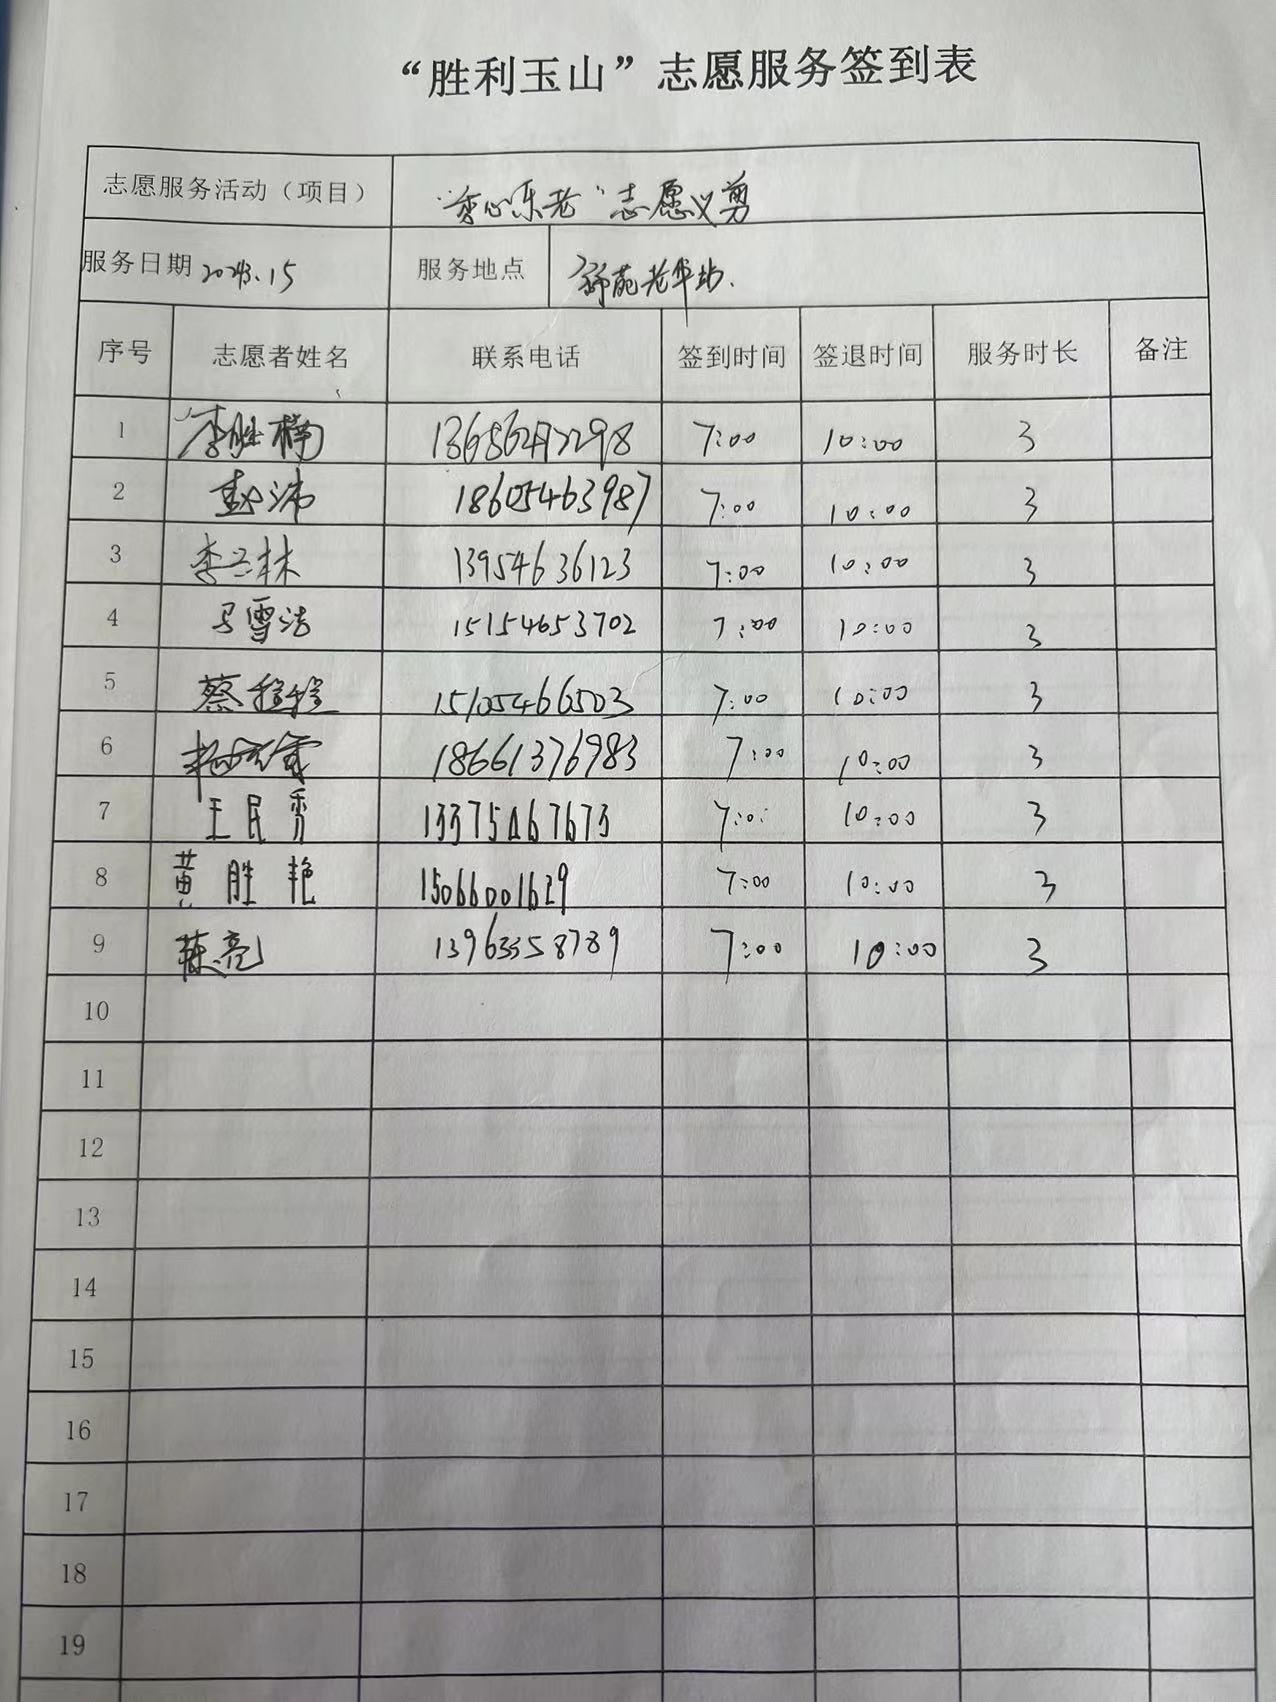 “胜利玉山”志愿服务签到表
志愿服务活动（项目） “孝心乐老”志愿义剪
服务日期 服务地点
序号 志愿者姓名 联系电话 签到时间 签退时间 服务时长 备注
1 李胜楠 7:00 10:00 3
2 18605463987 7:00 10:00 3
3 李兰林 13954636123 7:00 10:00 3
4 马雪洁 15154653702 7:00 10:00 3
5 蔡程程 15105466503 7:00 10:00 3
6 18661376983 7:00 10:00 3
7 王民秀 13375467673 7:0 10:00 3
8 黄胜艳 15066001629 7:00 10:00 3
9 陈亮 13963358789 7:00 10:00 3
10
11
12
13
14
15
16
17
18
19